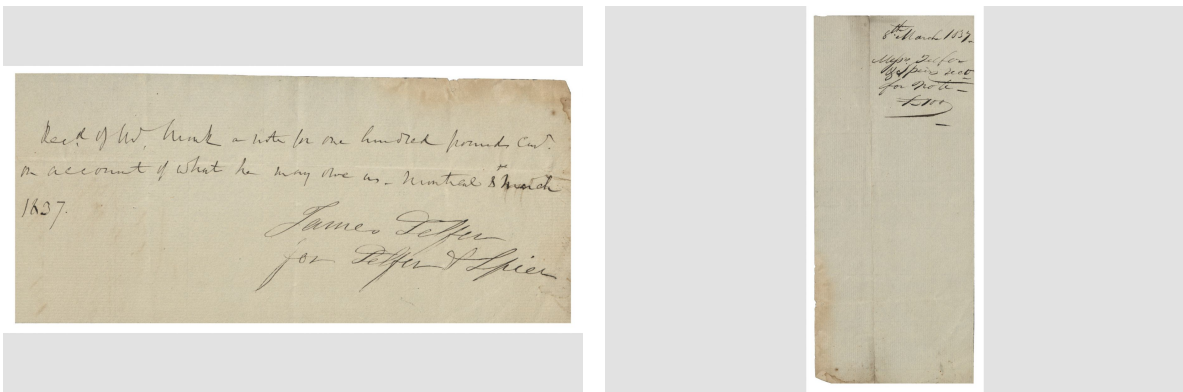 Recd. of Mr. Monk a note for one hundred pounds
on account of what he may owe us - Montreal 8th March
1837.
James Telfer
for Telfer & Spier
8th March 1837-
Messrs Telfer
& Spier rect
for Note -
£100